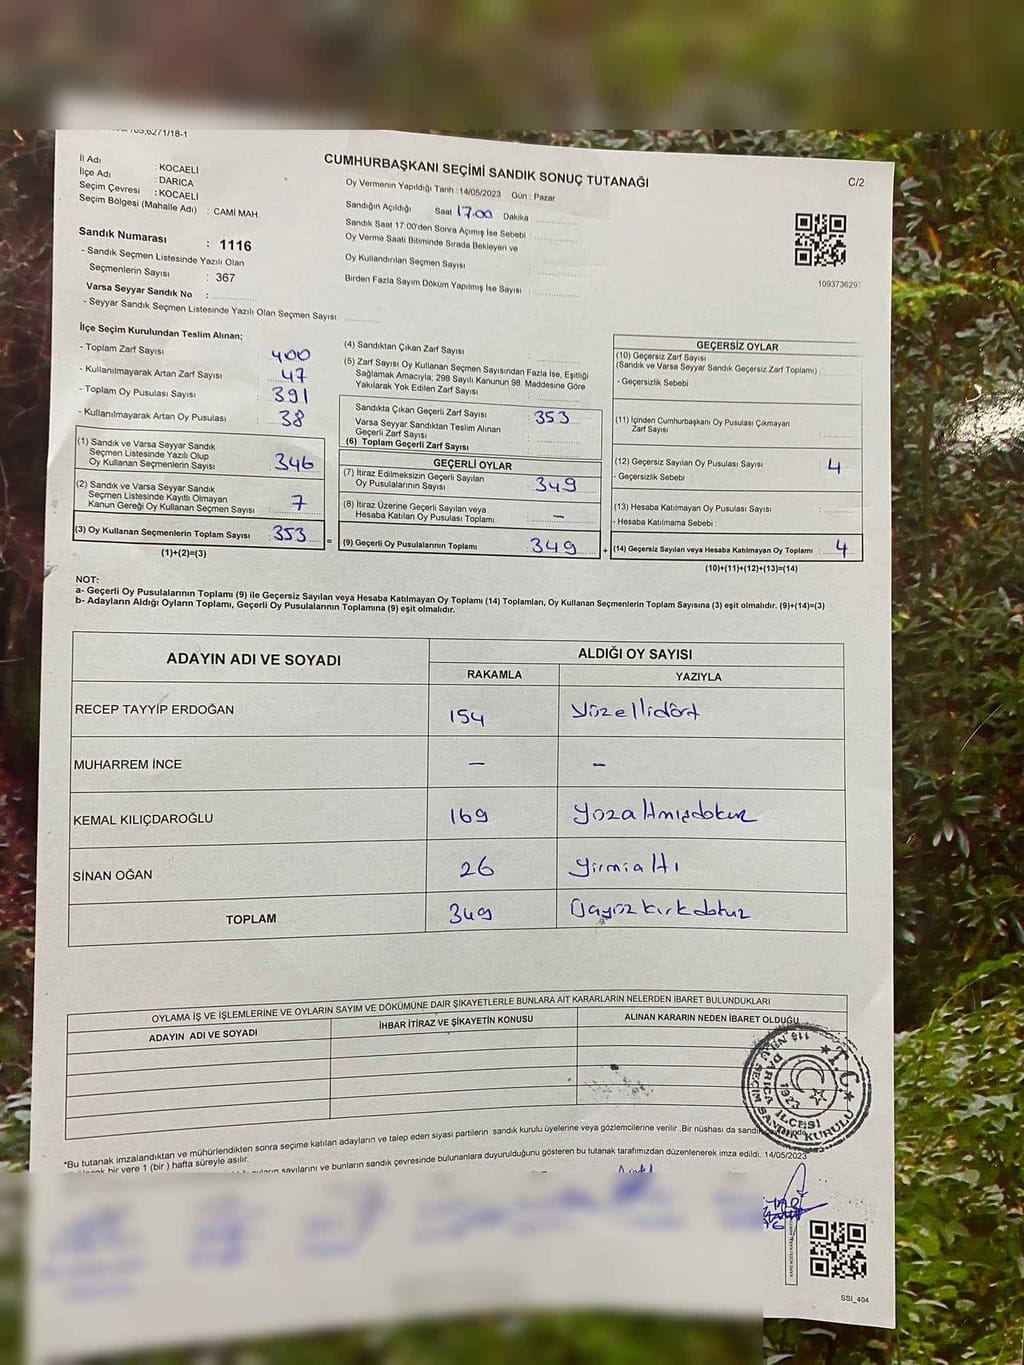 CUMHURBAŞKANI SEÇİMİ SANDIK SONUÇ TUTANAĞI
C/2
İl Adı : KOCAELİ
İlçe Adı : DARICA
Seçim Çevresi : KOCAELİ
Seçim Bölgesi (Mahalle Adı) : CAMİ MAH.
Sandık Numarası : 1116
- Sandık Seçmen Listesinde Yazılı Olan
Seçmenlerin Sayısı : 367
Varsa Seyyar Sandık No :
- Seyyar Sandık Seçmen Listesinde Yazılı Olan Seçmen Sayısı
Oy Vermenin Yapıldığı Tarih : 14/05/2023 Gün : Pazar
Sandığın Açıldığı Saat 17.00 Dakika :
Sandık Saat 17:00'den Sonra Açımış İse Sebebi :
Oy Verme Saati Bitiminde Sırada Bekleyen ve
Oy Kullandırılan Seçmen Sayısı
Birden Fazla Sayım Döküm Yapılmış İse Sayısı :
109373629
İlçe Seçim Kurulundan Teslim Alınan;
- Toplam Zarf Sayısı : 400
- Kullanılmayarak Artan Zarf Sayısı : 47
- Toplam Oy Pusulası Sayısı : 391
- Kullanılmayarak Artan Oy Pusulası : 38
(1) Sandık ve Varsa Seyyar Sandık
Seçmen Listesinde Yazılı Olup
Oy Kullanan Seçmenlerin Sayısı : 346
(2) Sandık ve Varsa Seyyar Sandık
Seçmen Listesinde Kayıtlı Olmayan
Kanun Gereği Oy Kullanan Seçmen Sayısı : 7
(3) Oy Kullanan Seçmenlerin Toplam Sayısı : 353
(1)+(2)=(3)
(4) Sandıktan Çıkan Zarf Sayısı
(5) Zarf Sayısı Oy Kullanan Seçmen Sayısından Fazla İse, Eşitliği
Sağlamak Amacıyla; 298 Sayılı Kanunun 98. Maddesine Göre
Yakılarak Yok Edilen Zarf Sayısı
Sandıkta Çıkan Geçerli Zarf Sayısı : 353
Varsa Seyyar Sandıktan Teslim Alınan
Geçerli Zarf Sayısı
(6) Toplam Geçerli Zarf Sayısı
GEÇERLİ OYLAR
(7) İtiraz Edilmeksizin Geçerli Sayılan
Oy Pusulalarının Sayısı : 349
(8) İtiraz Üzerine Geçerli Sayılan veya
Hesaba Katılan Oy Pusulası Toplamı : —
= (9) Geçerli Oy Pusulalarının Toplamı : 349
GEÇERSİZ OYLAR
(10) Geçersiz Zarf Sayısı
(Sandık ve Varsa Seyyar Sandık Geçersiz Zarf Toplamı)
- Geçersizlik Sebebi
(11) İçinden Cumhurbaşkanı Oy Pusulası Çıkmayan
Zarf Sayısı
(12) Geçersiz Sayılan Oy Pusulası Sayısı : 4
- Geçersizlik Sebebi
(13) Hesaba Katılmayan Oy Pusulası Sayısı
- Hesaba Katılmama Sebebi :
+ (14) Geçersiz Sayılan veya Hesaba Katılmayan Oy Toplamı : 4
(10)+(11)+(12)+(13)=(14)
NOT:
a- Geçerli Oy Pusulalarının Toplamı (9) ile Geçersiz Sayılan veya Hesaba Katılmayan Oy Toplamı (14) Toplamları, Oy Kullanan Seçmenlerin Toplam Sayısına (3) eşit olmalıdır. (9)+(14)=(3)
b- Adayların Aldığı Oyların Toplamı, Geçerli Oy Pusulalarının Toplamına (9) eşit olmalıdır.
ADAYIN ADI VE SOYADI
ALDIĞI OY SAYISI
RAKAMLA YAZIYLA
RECEP TAYYİP ERDOĞAN 154 Yüzellidört
MUHARREM İNCE — —
KEMAL KILIÇDAROĞLU 169 Yüzaltmışdokuz
SİNAN OĞAN 26 Yirmialtı
TOPLAM 349 Üçyüzkırkdokuz
OYLAMA İŞ VE İŞLEMLERİNE VE OYLARIN SAYIM VE DÖKÜMÜNE DAİR ŞİKAYETLERLE BUNLARA AİT KARARLARIN NELERDEN İBARET BULUNDUKLARI
ADAYIN ADI VE SOYADI İHBAR İTİRAZ VE ŞİKAYETİN KONUSU ALINAN KARARIN NEDEN İBARET OLDUĞU
T.C.
DARICA İLÇESİ
SANDIK KURULU
1923
*Bu tutanak imzalandıktan ve mühürlendikten sonra seçime katılan adayların ve talep eden siyasi partilerin sandık kurulu üyelerine veya gözlemcilerine verilir .Bir nüshası da
bir yere 1 (bir ) hafta süreyle asılır.
sayılarını ve bunların sandık çevresinde bulunanlara duyurulduğunu gösteren bu tutanak tarafımızdan düzenlenerek imza edildi. 14/05/2023
SSI_404